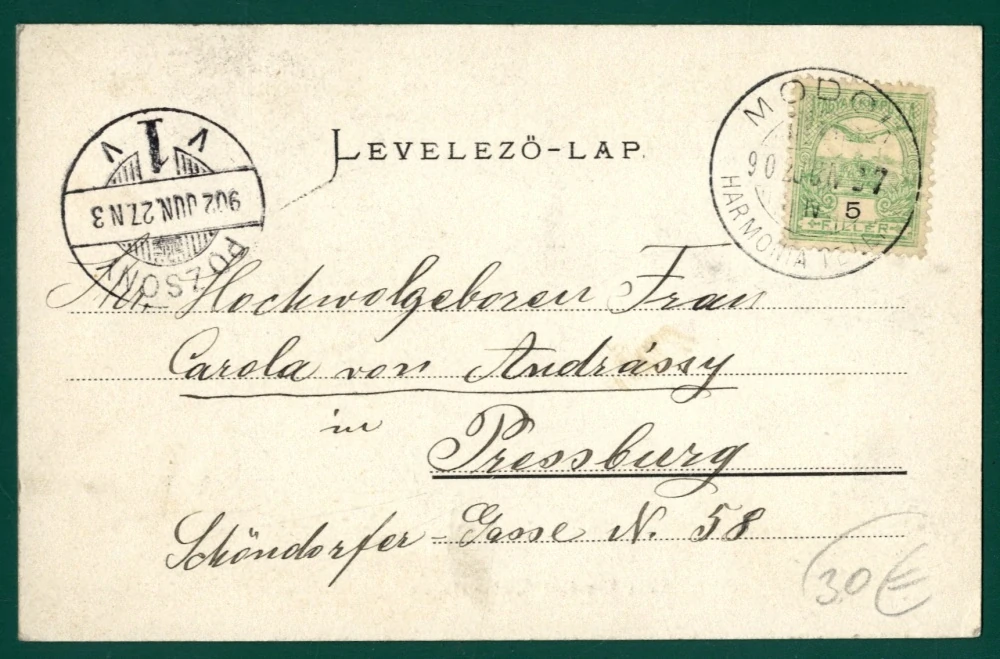 LEVELEZŐ-LAP.
MODOR
902 JUN 27
HARMONIA
5
FILLER
1
V V
902 JUN. 27. N 3
POZSONY
Ihr. Hochwolgeboren Frau
Carola von Andrássy
in
Pressburg
Schöndorfer-Gasse N. 58
30 €